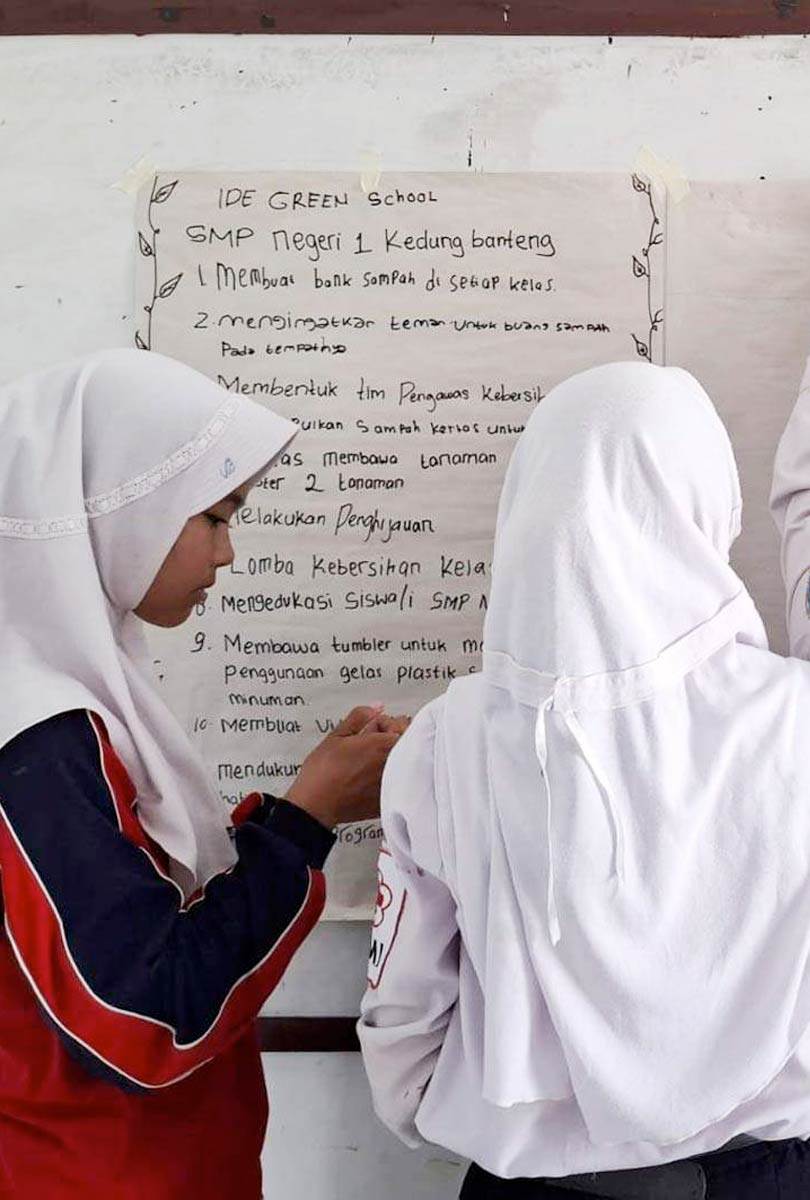 IDE GREEN School
SMP negeri 1 Kedungbanteng
1. Membuat bank sampah di setiap kelas.
2. mengingatkan teman untuk buang sampah
Pada tempatnya
Membentuk tim Pengawas
Sampah kertas
membawa tanaman
2 tanaman
Melakukan Penghijauan
Lomba Kebersihan
8. Mengedukasi Siswa/i SMP
9. Membawa tumbler untuk
penggunaan gelas plastik
minuman.
10. Membuat